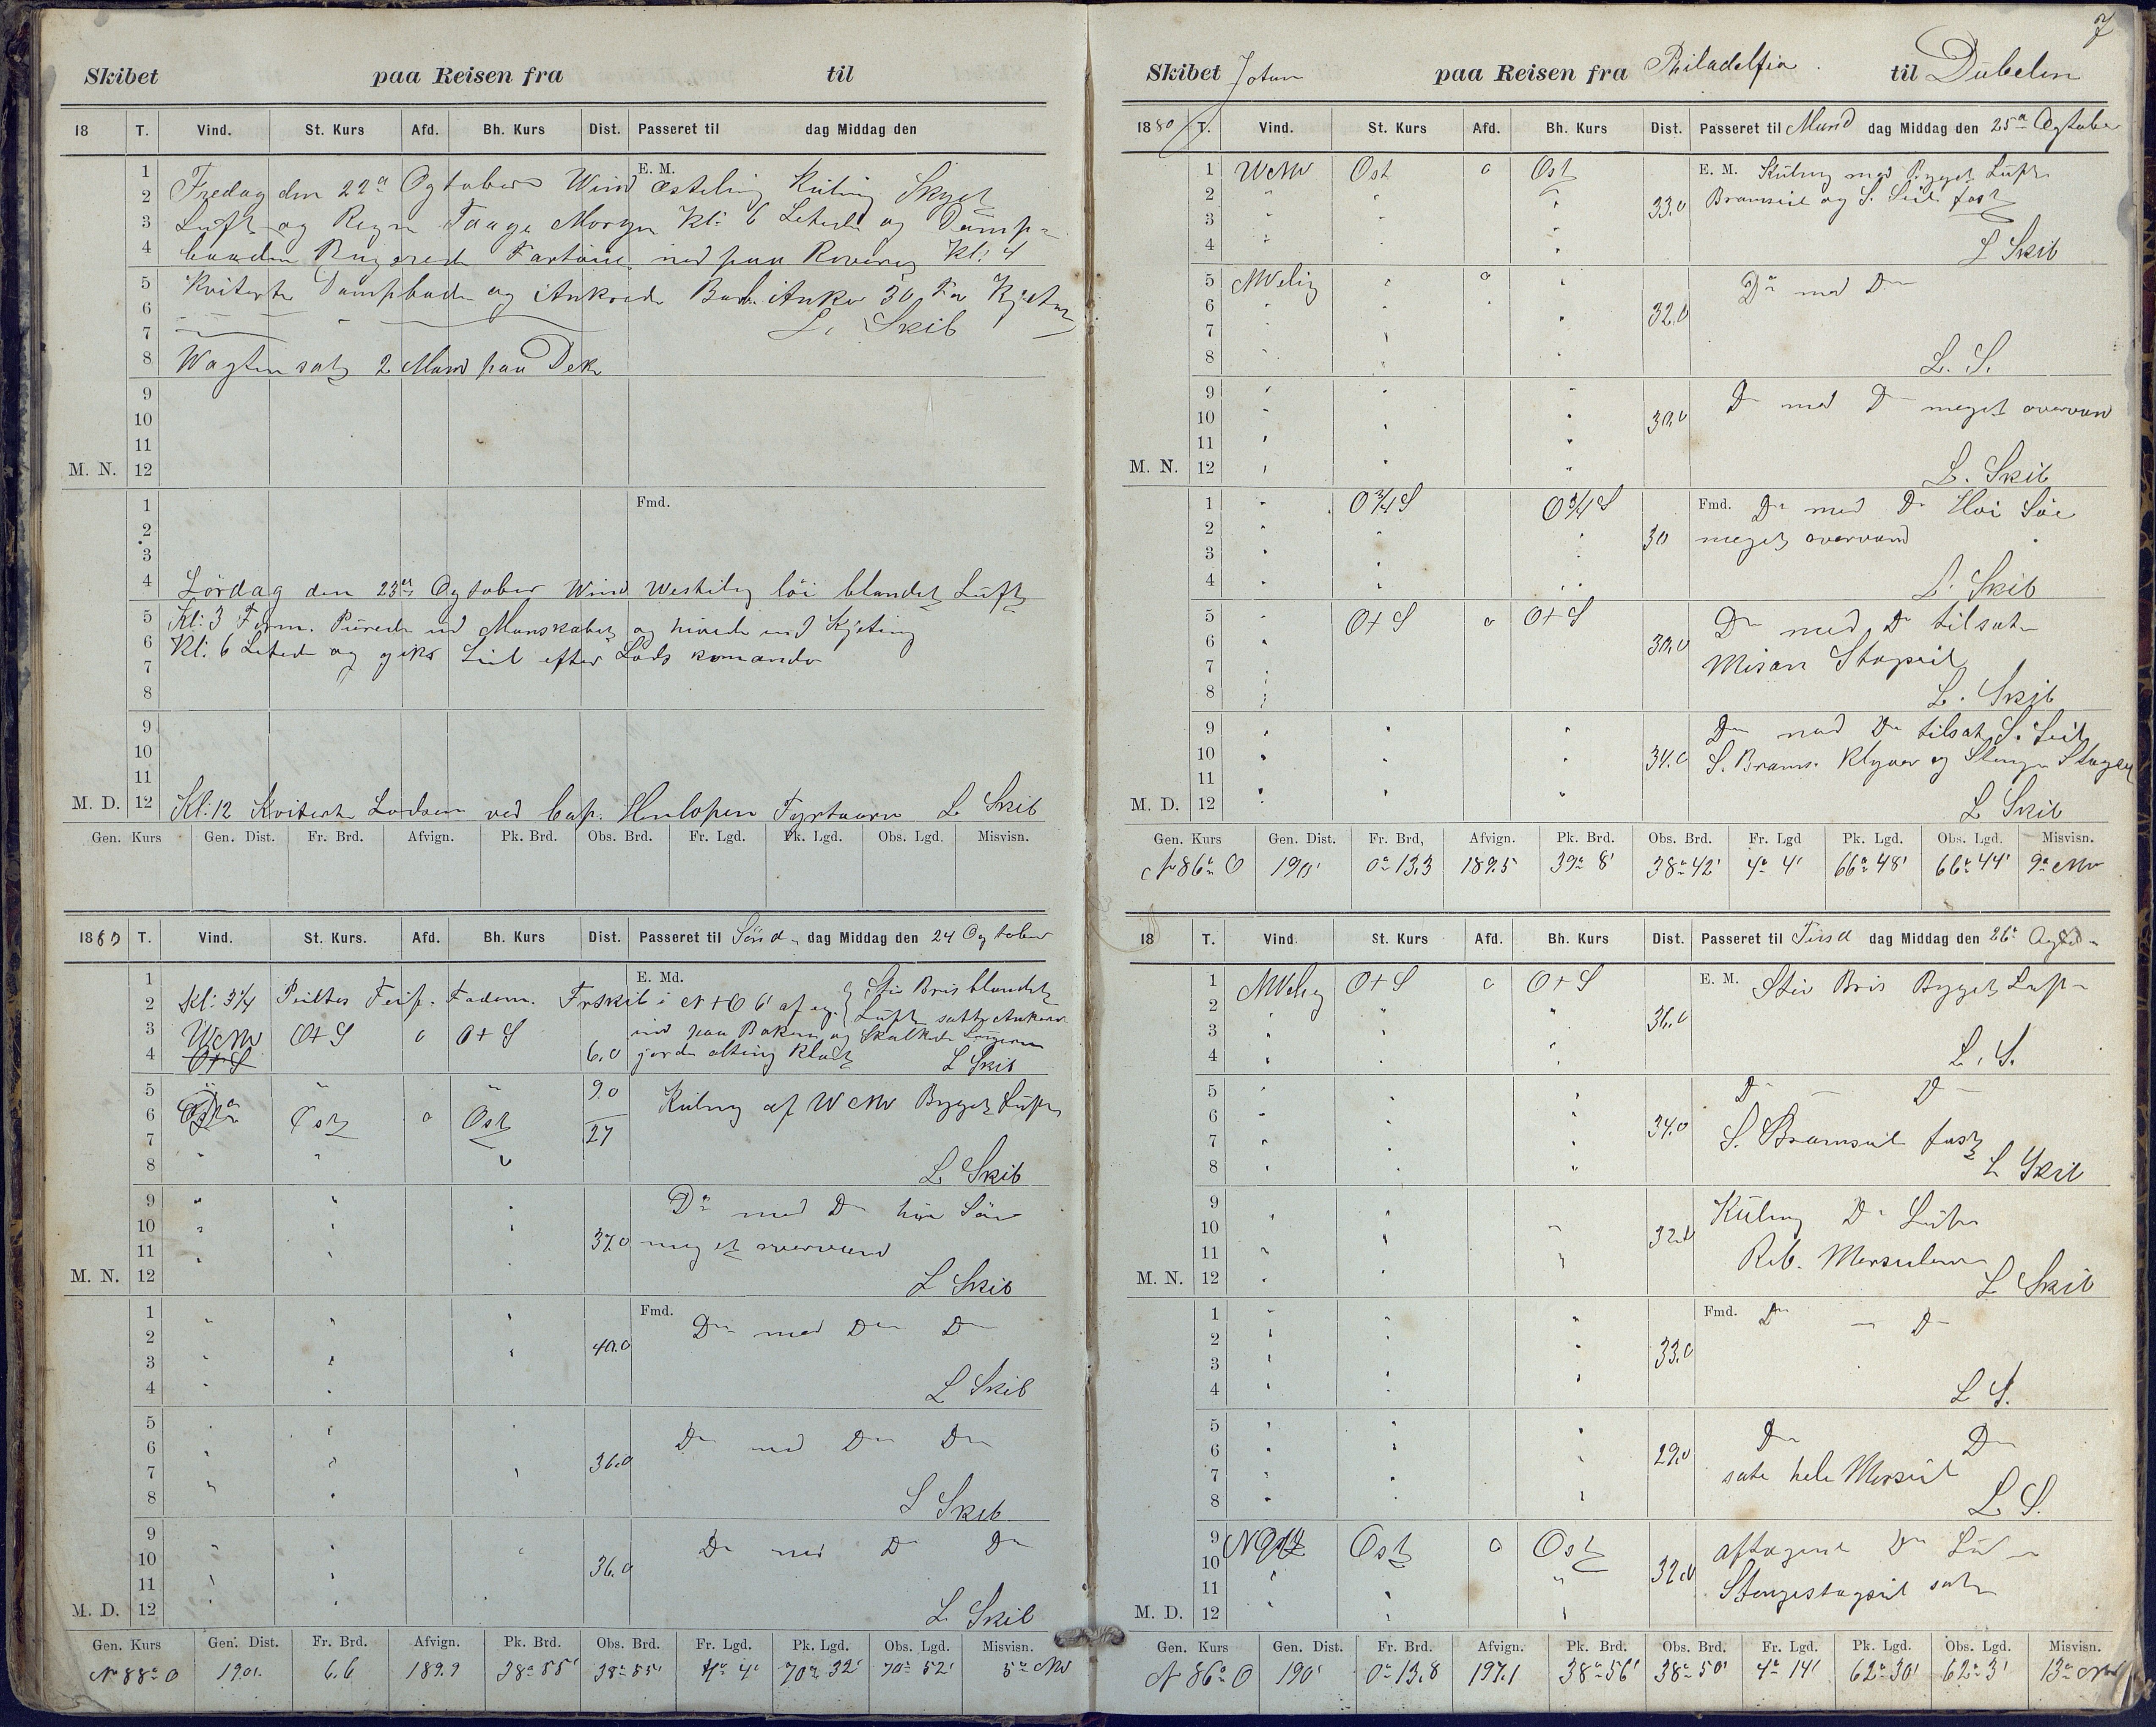 Skibet paa Reisen fra til
18 T. Vind. St. Kurs Afd. Bh. Kurs Dist. Passeret til dag Middag den
E. M.
1
2 Fredag den 22 Ogtober Wind Østelig Kuling Skyet
3 Luft og Regn Taage Morgen Kl: 6 Letede og Damp-
4 baaden ned paa Kl: 4
5 Kviterte Dampbaden og Ankrede Anker 30 Fv Kjetting
6
7 L. Skib
8 Wagten sat 2 Mand paa Dek
9
10
11
M. N. 12
1 Fmd.
2
3
4 Lördag den 23 Ogtober Wind Westelig löi blandet Luft
5 Kl: 3 Form. Purede ud Manskabet og hivede ind Kjeting
6 Kl. 6 Letede og gik Seil efter Lods komando
7
8
9
10
11
M. D. 12 Kl: 12 Kviterte Lodsen ved Cap. Henlopen Fyrtaarn L Skib
Gen. Kurs Gen. Dist. Fr. Brd. Afvign. Pk. Brd. Obs. Brd. Fr. Lgd. Pk. Lgd. Obs. Lgd. Misvisn.
1880 T. Vind. St. Kurs. Afd. Bh. Kurs Dist. Passeret til Sönd dag Middag den 24 Ogtober
1 E. Md. Stiv Bris blandet
2 Kl: 3¼ Peiltes Feif. Fadem. Frskib i N+O 6' af Luft satte Ankere
3 WNW O+S 0 O+S ind paa Baken og Skalkede Lugerne
4 O+S 6.0 jorde alting Klart L Skib
5 " " " 9.0
6 Ost Ost 0 Ost 27 Kuling af WNW Bygget Luft
7
8 " " " L Skib
9 " " " Do med Do höi Söe
10 " " " 37.0 meget overvand
11
M. N. 12 L Skib
1 Fmd. Do med Do Do
2 40.0
3
4 L Skib
5 Do med Do Do
6 36.0
7
8 L Skib
9 Do med Do Do
10 36.0
11
M. D. 12 L Skib
Gen. Kurs Gen. Dist. Fr. Brd. Afvign. Pk. Brd. Obs. Brd. Fr. Lgd. Pk. Lgd. Obs. Lgd. Misvisn.
N 88° O 190'. 6.6 189.9 38° 55' 38° 55' 4° 4' 70° 32' 70° 52' 5° NW
7
Skibet Jotun paa Reisen fra Philadelfia til Dubelin
1880 T. Vind. St. Kurs Afd. Bh. Kurs Dist. Passeret til Mand dag Middag den 25 Ogtober
1 WNW Ost 0 Ost E. M. Kuling med Bygget Luft
2 " " " 33.0 Bramseil og S. Seil fast
3
4 L Skib
5 NWelig " 0 " Do med Do
6 32.0
7
8 L. S.
9 Do med Do meget overvand
10 30.0
11
M. N. 12 L. Skib
1 " O¾S O¾S Fmd. Do med Do Höi Söe
2 30 meget overvand
3
4 L. Skib
5 " O+S 0 O+S Do med Do tilsat
6 30.0 Misan Stagseil
7
8 L. Skib
9 Do med Do tilsat S. Seil
10 34.0 S. Brams. Klyver og Stenge Stagseil
11
M. D. 12 L Skib
Gen. Kurs Gen. Dist. Fr. Brd, Afvign. Pk. Brd. Obs. Brd. Fr. Lgd Pk. Lgd. Obs. Lgd. Misvisn.
N 86° O 190' 0° 13.3 189.5 39° 8' 38° 42' 4° 4' 66° 48' 66° 44' 9° NW
18 T. Vind. St. Kurs Afd. Bh. Kurs Dist. Passeret til Tirsd dag Middag den 26
1 NWelig O+S 0 O+S E. M. Stiv Bris Bygget Luft
2 36.0
3
4 L. S.
5 Do Do
6 34.0 S. Bramseil fast
7
8 L Skib
9 Kuling Do Luft
10 32.0
11 Reb. Merseilene
M. N. 12 L Skib
1 Fmd. Do Do
2 33.0
3
4 L S.
5 Do Do
6 29.0
7 sate hele Merseil
8 L S.
9 Ost 0 Ost aftagende Do
10 32.0
11 Stengestagseil sat
M. D. 12
Gen. Kurs Gen. Dist. Fr. Brd. Afvign. Pk. Brd. Obs. Brd. Fr. Lgd. Pk. Lgd. Obs. Lgd. Misvisn.
N 86° O 190' 0° 13.8 197.1 38° 56' 38° 50' 4° 14' 62° 30' 62° 3' 13° NW